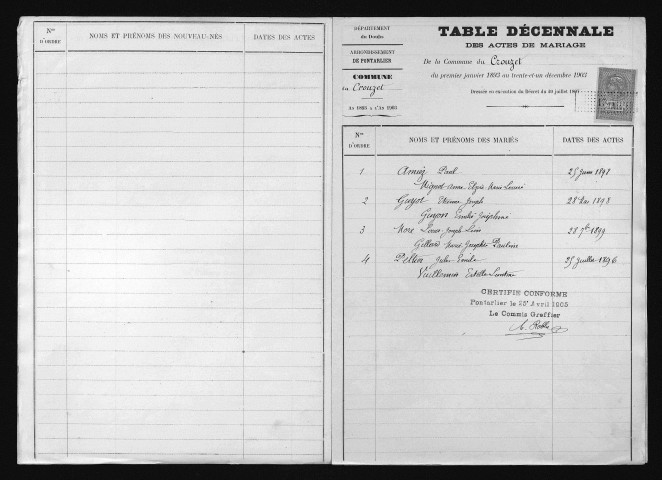 Nos
D'ORDRE
NOMS ET PRÉNOMS DES NOUVEAU-NÉS
DATES DES ACTES
DÉPARTEMENT
du Doubs
ARRONDISSEMENT
DE PONTARLIER
COMMUNE
du Crouzet
AN 1893 A L'AN 1903
TABLE DÉCENNALE
DES ACTES DE MARIAGE
De la Commune du Crouzet
du premier janvier 1893 au trente-et-un décembre 1903
Dressée en exécution du Décret du 20 juillet
Nos
D'ORDRE
NOMS ET PRÉNOMS DES MARIÉS
DATES DES ACTES
1 Paul 25 Juin 1898
Marie
2 Guyot Joseph 28 1898
Guyon Joséphine
3 Louis Joseph 28 7bre 1899
Marie Pauline
4 Jules Emile 25 Juillet 1896
Vuillemin
CERTIFIÉ CONFORME
Pontarlier le 25 Avril 1905
Le Commis Greffier